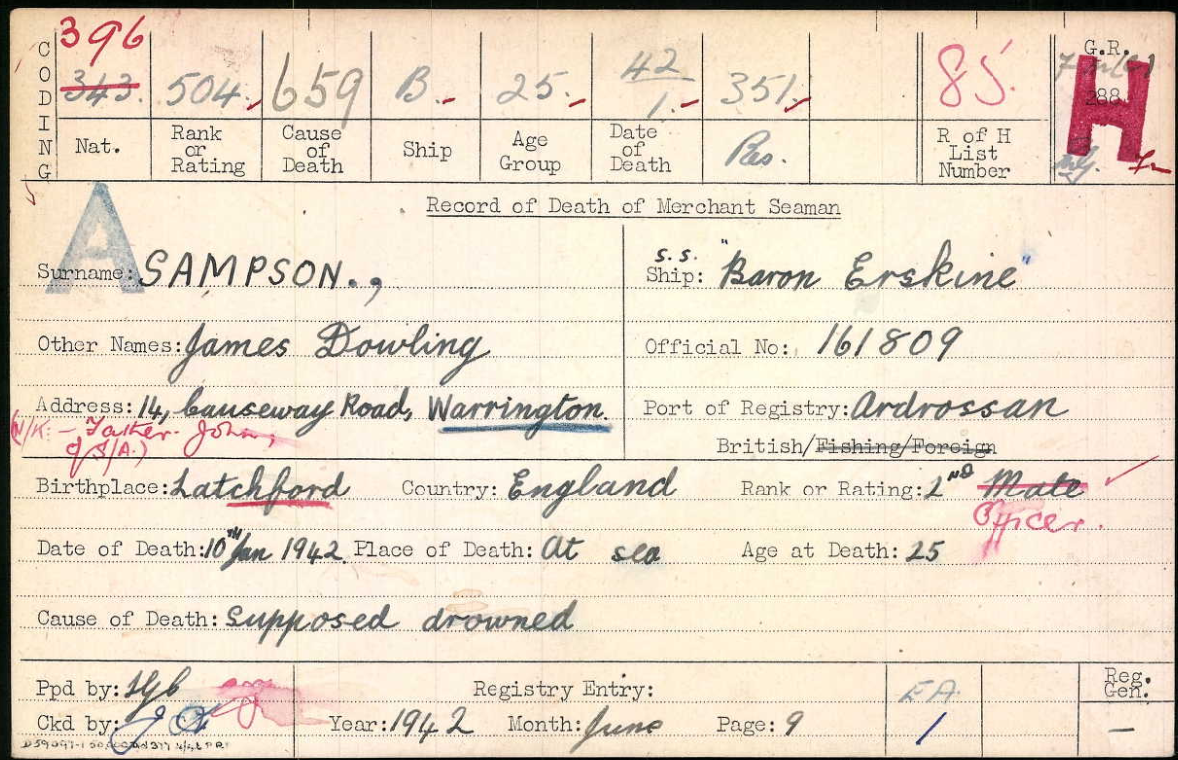 396
CODING
343. 504. 659 B. 25. 42/1. 351. 85 G.R. 288 H
Nat. Rank or Rating Cause of Death Ship Age Group Date of Death Res. R of H List Number
A
Record of Death of Merchant Seaman
Surname: SAMPSON.,
s.s. Ship: "Baron Erskine"
Other Names: James Dowling
Official No: 161809
Address: 14, Causeway Road, Warrington.
Port of Registry: Ardrossan
(N/K- Father- John,
of S/A.)
British/Fishing/Foreign
Birthplace: Latchford Country: England Rank or Rating: 2ND Mate
Officer.
Date of Death: 10TH Jan 1942. Place of Death: At sea Age at Death: 25
Cause of Death: Supposed drowned
Ppd by: Registry Entry: E.A. Reg. Gen.
Ckd by: Year: 1942 Month: June Page: 9 / —